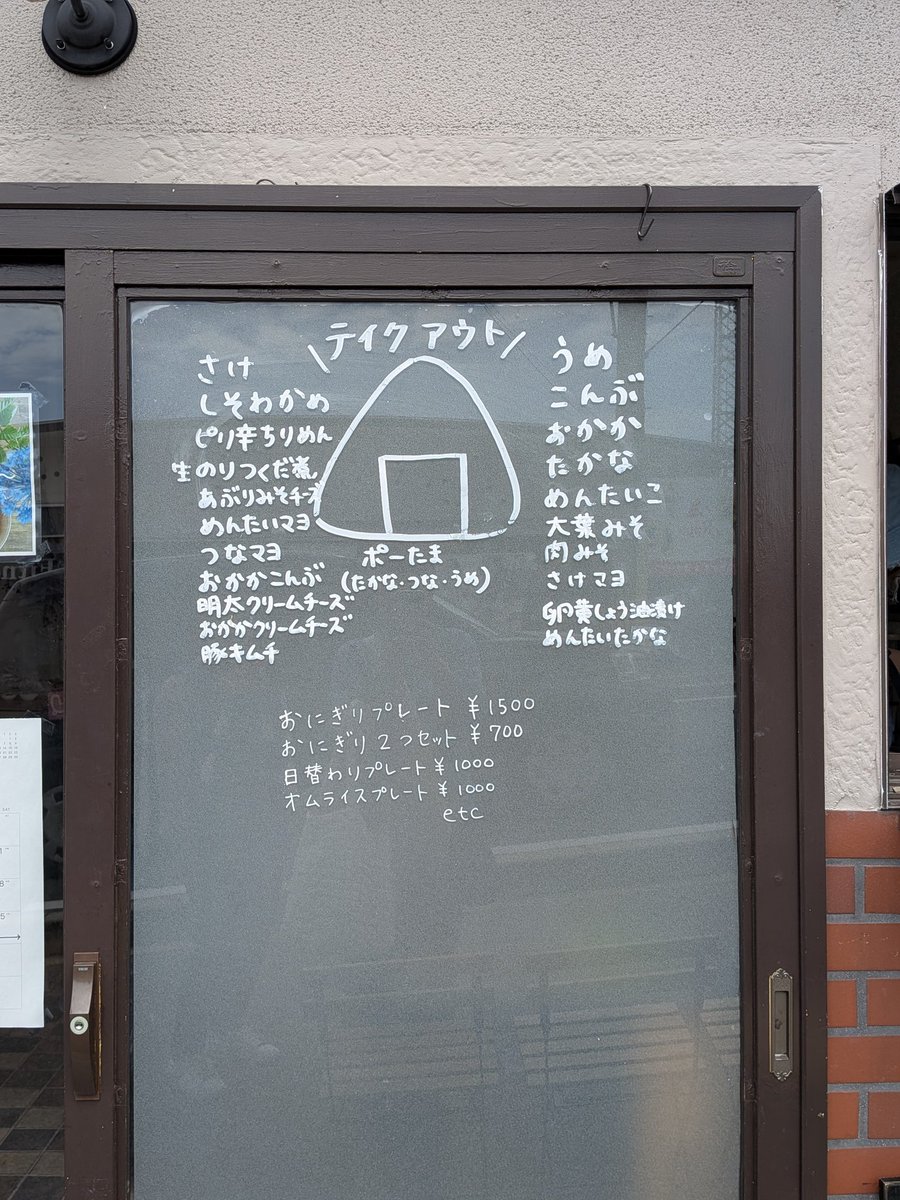 テイクアウト
さけ
しそわかめ
ピリ辛ちりめん
生のりつくだ煮
あぶりみそチーズ
めんたいマヨ
つなマヨ
おかかこんぶ
明太クリームチーズ
おかかクリームチーズ
豚キムチ
ポーたま
(たかな・つな・うめ)
うめ
こんぶ
おかか
たかな
めんたいこ
大葉みそ
肉みそ
さけマヨ
卵黄しょう油漬け
めんたいたかな
おにぎりプレート ¥1500
おにぎり2つセット ¥700
日替わりプレート ¥1000
オムライスプレート ¥1000
etc